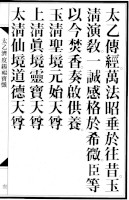 太乙傳經萬法昭垂於往昔玉
清演教一誠感格於希微臣等
以今焚香奏啟供養
玉清聖境元始天尊
上清眞境靈寶天尊
太清仙境道德天尊
太乙濟度錫福寶懺